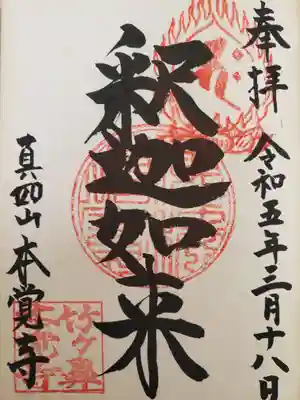 奉拝 令和五年三月十八日
釈迦如来
真四山本覚寺
竹ヶ鼻